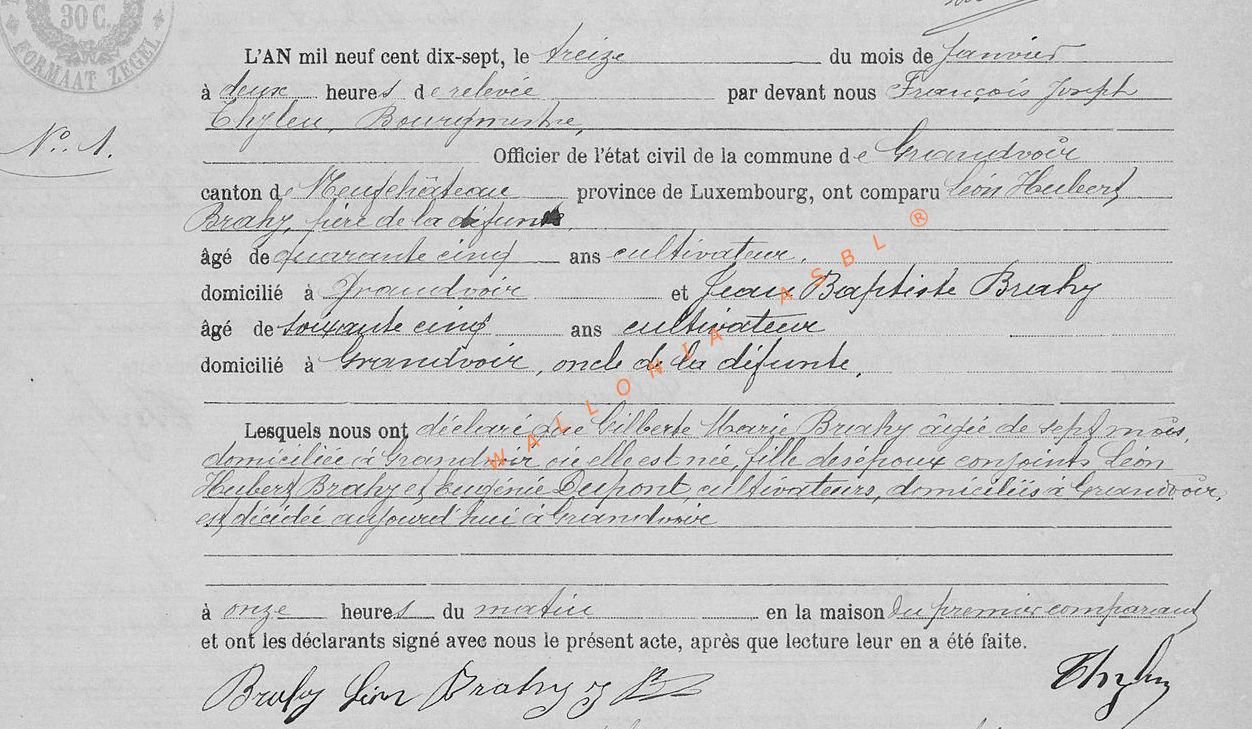 30 C.
FORMAAT ZEGEL
L'AN mil neuf cent dix-sept, le treize du mois de Janvier
à deux heures de relevée par devant nous François Joseph
Thyleu, Bourgmestre,
No. 1.
Officier de l'état civil de la commune de Grandvoir
canton de Neufchâteau province de Luxembourg, ont comparu Léon Hubert
Brahy, père de la défunte,
âgé de quarante cinq ans cultivateur,
domicilié à Grandvoir et Jean Baptiste Brahy
âgé de soixante cinq ans cultivateur
domicilié à Grandvoir, oncle de la défunte,
Lesquels nous ont déclaré que Gilberte Marie Brahy âgée de sept mois,
domiciliée à Grandvoir où elle est née, fille des époux conjoints Léon
Hubert Brahy et Eugénie Dupont, cultivateurs, domiciliés à Grandvoir,
est décédée aujourd'hui à Grandvoir
à onze heures du matin en la maison du premier comparant
et ont les déclarants signé avec nous le présent acte, après que lecture leur en a été faite.
Brahy Léon Brahy J Bte Thyleu
WALLONIA ASBL ®